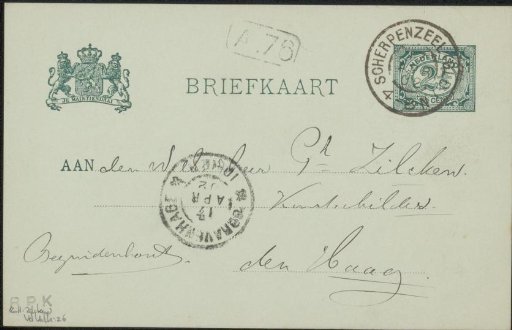 A.76
SCHERPENZEEL
4
JE MAINTIENDRAI
NEDERLAND
2
CENT
BRIEFKAART
AAN den Weledelen heer Ph Zilcken
Kunstschilder
'S GRAVENHAGE
17
APR
Bezuidenhout.
den Haag
R.P.K.